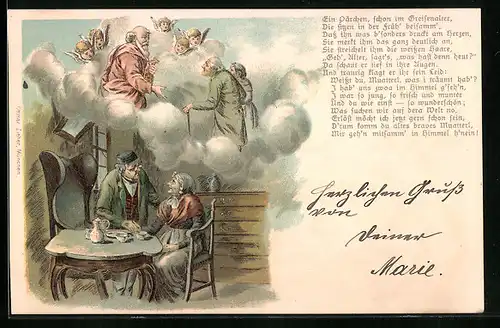 Ein Pärchen, schon im Greisenalter,
Die sitzen in der Früh' beisamm',
Daß ihn was b'sonders druckt am Herzen,
Sie merkt ihm das ganz deutlich an,
Sie streichelt ihm die weißen Haare,
„Geh', Alter, sagt's, „was hast denn heut?"
Da schaut er tief in ihre Augen,
Und traurig klagt er ihr sein Leid:
Weißt du, Muatterl, was i träumt hab'?
I hab' uns zwoa im Himmel g'seh'n,
I war so jung, so frisch und munter
Und du wie einst — so wunderschön;
Was suchen wir auf dera Welt no,
Erlöst möcht ich jetzt gern schon sein,
D'rum komm du altes braves Muatterl,
Mir geh'n mitsamm' in Himmel h'nein!
Herzlichen Gruß
von
Deiner
Marie.
Ottmar Zieher, München.